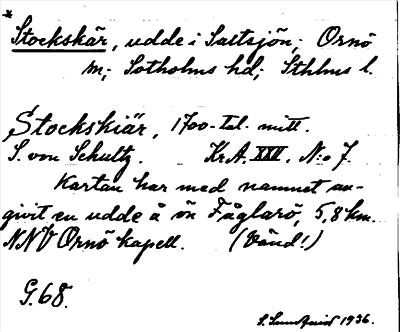 Stockskär, udde i Saltsjön; Ornö
sn; Sotholms hd; Sthlms l.
Stockskiär, 1700-tal. mitt.
S. von Schultz. Kr.A. XXVI. N:o 7.
Kartan har med namnet an-
givit en udde å ön Fåglarö, 5,8 km.
NNV Ornö kapell. (Vänd!)
G.68.
S. Sundqvist 1936.